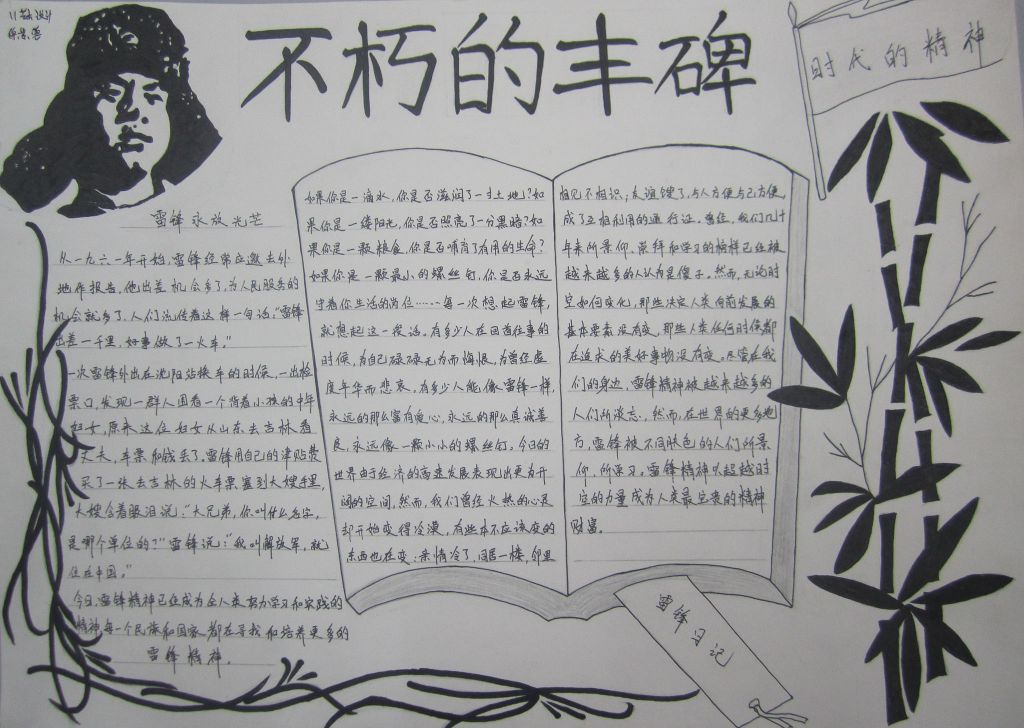 不朽的丰碑
时代的精神
雷锋永放光芒
从一九六一年开始,雷锋经常应邀去外
地作报告,他出差机会多了,为人民服务的
机会就多了,人们流传着这样一句话:“雷锋
出差一千里,好事做了一火车。”
一次雷锋外出在沈阳站换车的时候,一出检
票口,发现一群人围着一个背着小孩的中年
妇女,原来这位妇女从山东去吉林看
丈夫,车票和钱丢了。雷锋用自己的津贴费
买了一张去吉林的火车票塞到大嫂手里,
大嫂含着眼泪说:“大兄弟,你叫什么名字,
是哪个单位的?”雷锋说:“我叫解放军,就
住在中国。”
今日,雷锋精神已经成为全人类努力学习和实践的
精神每一个民族和国家都在寻找和培养更多的
雷锋精神。
如果你是一滴水,你是否滋润了一寸土地?如
果你是一缕阳光,你是否照亮了一分黑暗?如
果你是一颗粮食,你是否哺育了有用的生命?
如果你是一颗最小的螺丝钉,你是否永远
守着你生活的岗位……每一次想起雷锋,
就想起这一段话。有多少人在回首往事的
时候,为自己碌碌无为而悔恨,为曾经虚
度年华而悲哀,有多少人能像雷锋一样,
永远的那么富有爱心,永远的那么真诚善
良,永远像一颗小小的螺丝钉。今日的
世界由于经济的高速发展表现出更为开
阔的空间,然而,我们曾经火热的心灵
却开始变得冷漠,有些本不应该变的
东西也在变:亲情冷了,同居一楼,邻里
相见不相识;友谊馊了,与人方便与己方便
成了互相利用的通行证。曾经,我们几十
年来所景仰、崇拜和学习的榜样已经被
越来越多的人认为是傻子。然而,无论时
空如何变化,那些决定人类向前发展的
基本要素没有变。那些人类任何时候都
在追求的美好事物没有变。尽管在我
们的身边,雷锋精神被越来越多的
人们所淡忘,然而,在世界的更多地
方,雷锋被不同肤色的人们所景
仰,所学习。雷锋精神以超越时
空的力量成为人类最宝贵的精神
财富。
雷锋日记